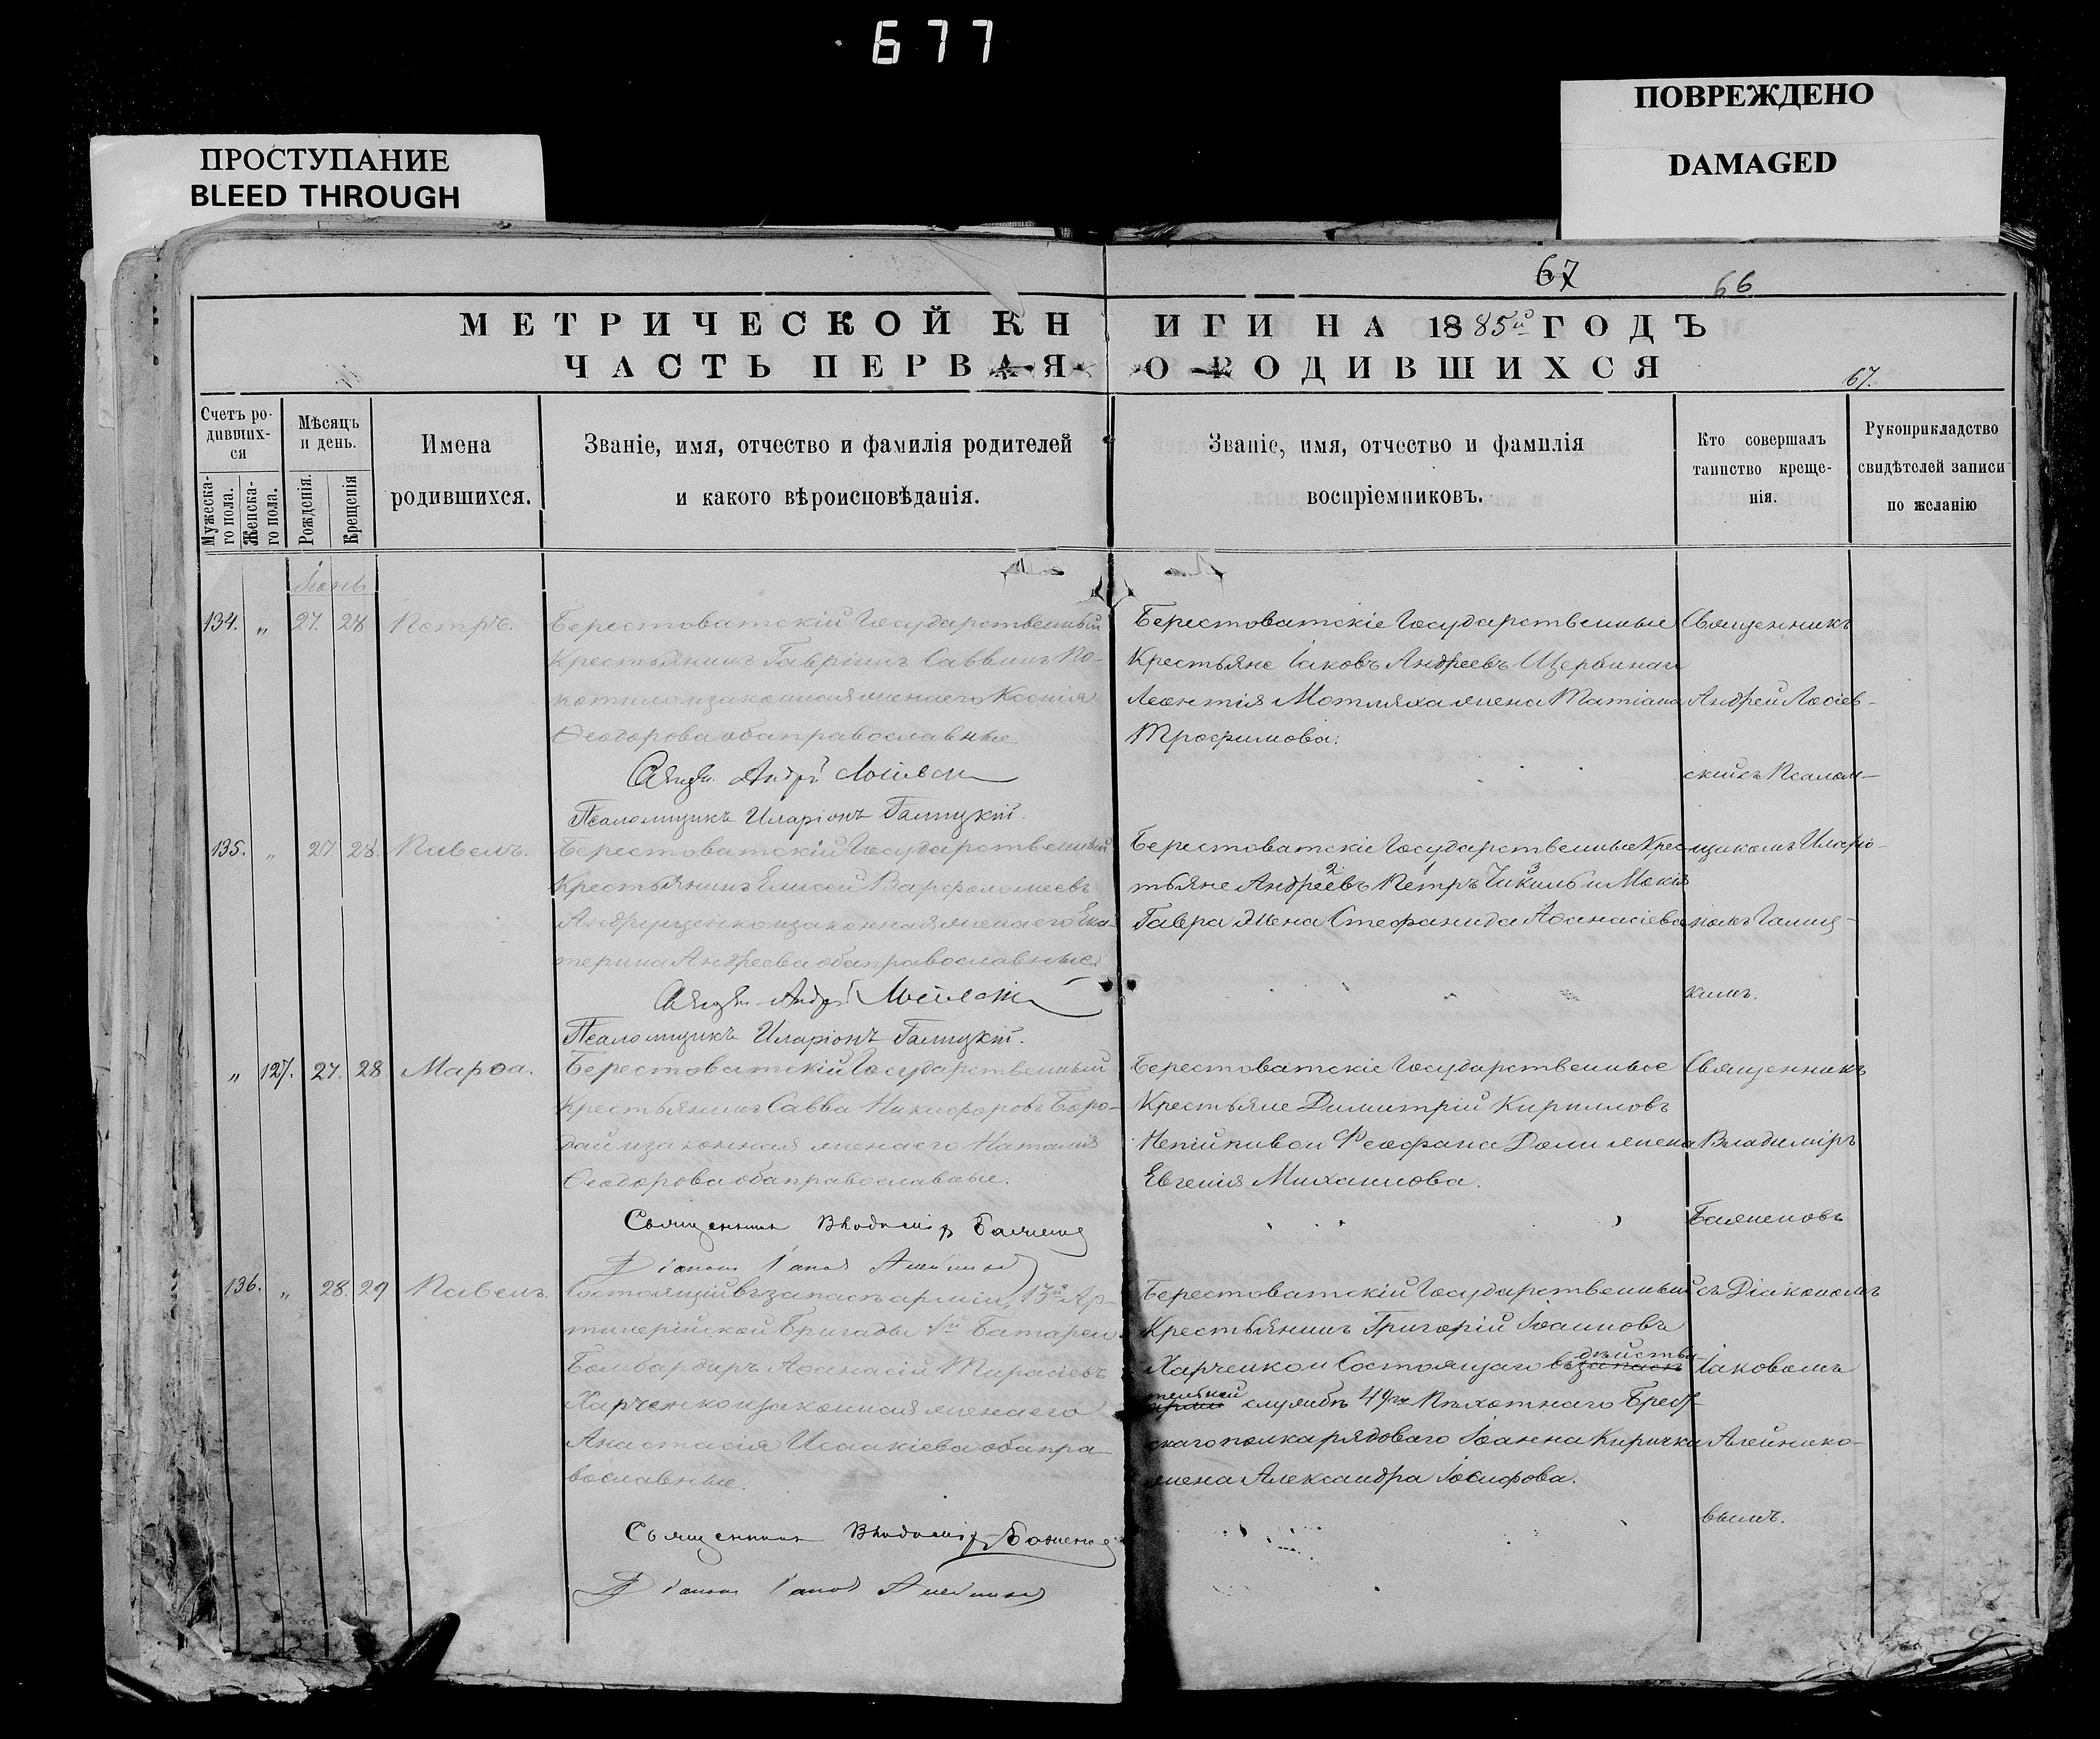 677
ПОВРЕЖДЕНО
DAMAGED
ПРОСТУПАНИЕ
BLEED THROUGH
67
66
МЕТРИЧЕСКОЙ КНИГИ НА 1885й ГОДЪ
ЧАСТЬ ПЕРВАЯ О РОДИВШИХСЯ
67.
Счетъ ро-
дивших-
ся
Мужеска-
го пола.
Женска-
го пола.
Мѣсяцъ
и день.
Рожденія.
Крещенія
Имена
родившихся.
Званіе, имя, отчество и фамилія родителей
и какого вѣроисповѣданія.
Званіе, имя, отчество и фамилія
воспріемниковъ.
Кто совершалъ
таинство креще-
нія.
Рукоприкладство
свидѣтелей записи
по желанію
Іюнь
134. „ 27. 28 Петръ.
Берестоватскій Государственный
Крестьянинъ Гавріилъ Саввинъ По-
и законная жена его Ксенія
Ѳеодорова оба православные.
Андрей
Псаломщикъ Иларіонъ Галицкій.
Берестоватскіе Государственные
Крестьяне Іаковъ Андреевъ Щербина и
Леонтія Мотляха жена Татіана
Трофимова.
Священникъ
Андрей Лосіев-
скій съ Псалом-
135. „ 27. 28. Павелъ.
Берестоватскій Государственный
Крестьянинъ Елисей Варфоломеевъ
Андрущенко и законная жена его Ека-
терина Андреева оба православные.
Андрей
Псаломщикъ Иларіонъ Галицкій.
Берестоватскіе Государственные Крес-
тьяне Андреевъ 2 Петръ 3 и Мокія
Гавра жена Стефанида Аѳанасіева
щикомъ Иларіо-
номъ Галиц-
кимъ.
„ 127. 27. 28 Марѳа.
Берестоватскій Государственный
Крестьянинъ Савва Никифоровъ Боро-
дай и законная жена его Наталія
Ѳеодорова оба православные.
Священникъ Владиміръ Баженовъ
Діаконъ Іаковъ Алейниковъ
Берестоватскіе Государственные
Крестьяне Димитрій Кирилловъ
Непійпиво и Феофана жена
Евгенія Михаилова.
Священникъ
Владиміръ
Баженовъ
136. „ 28. 29 Павелъ.
Состоящій въ запасѣ арміи, 13й Ар-
тилерійской Бригады 1й Батареи
Бомбардиръ Аѳанасій Тарасіевъ
Харченко и законная жена его
Анастасія Исаакіева оба пра-
вославные.
Священникъ Владиміръ Баженовъ
Діаконъ Іаковъ Алейниковъ
Берестоватскій Государственный
Крестьянинъ Григорій Іоанновъ
Харченко и Состоящаго въ запасѣ дѣйстви-
арміи тельной службѣ 49го Пѣхотнаго Брест-
скаго полка рядоваго Іоанна Киричка
жена Александра Іосифова.
съ Діакономъ
Іаковомъ
Алейнико-
вымъ.